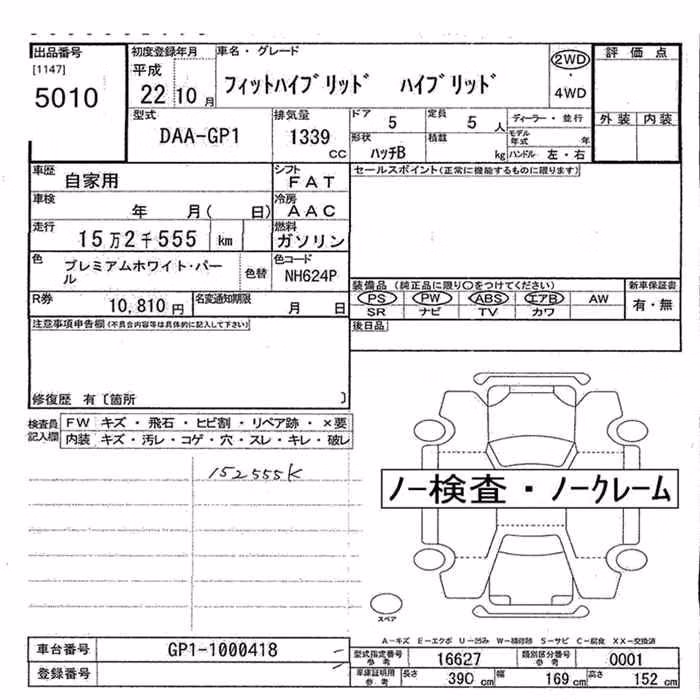 出品番号 初度登録年月 車名・グレード 2WD 評価点
[1147] 平成 フィットハイブリッド ハイブリッド ・
5010 22 10月 4WD
型式 排気量 ドア 定員 ディーラー・並行 外装 内装
DAA-GP1 1339 CC 5 5人 モデル年式 年
形状 積載
ハッチB kg ハンドル 左・右
車歴 自家用 シフト FAT セールスポイント(正常に機能するものに限ります)
車検 年 月( 日) 冷房 AAC
走行 15万2千555 km 燃料 ガソリン
色 プレミアムホワイト・パール 色替 色コード NH624P
装備品(純正品に限り○をつけてください) 新車保証書
R券 10,810円 名変通知期限 月 日 PS PW ABS エアB AW 有・無
SR ナビ TV カワ
注意事項申告欄(不具合内容等は具体的に記入して下さい) 後日品
修復歴 有〔箇所 〕
検査員記入欄 FW キズ・飛石・ヒビ割・リペア跡・×要
内装 キズ・汚レ・コゲ・穴・スレ・キレ・破レ
152555K
ノー検査・ノークレーム
スペア
A-キズ E-エクボ U-凹み W-補修跡 S-サビ C-腐食 XX-交換済
車台番号 GP1-1000418 型式指定番号 参考 16627 類別区分番号 参考 0001
登録番号 車庫証明用 参考 長さ 390cm 幅 169cm 高さ 152cm